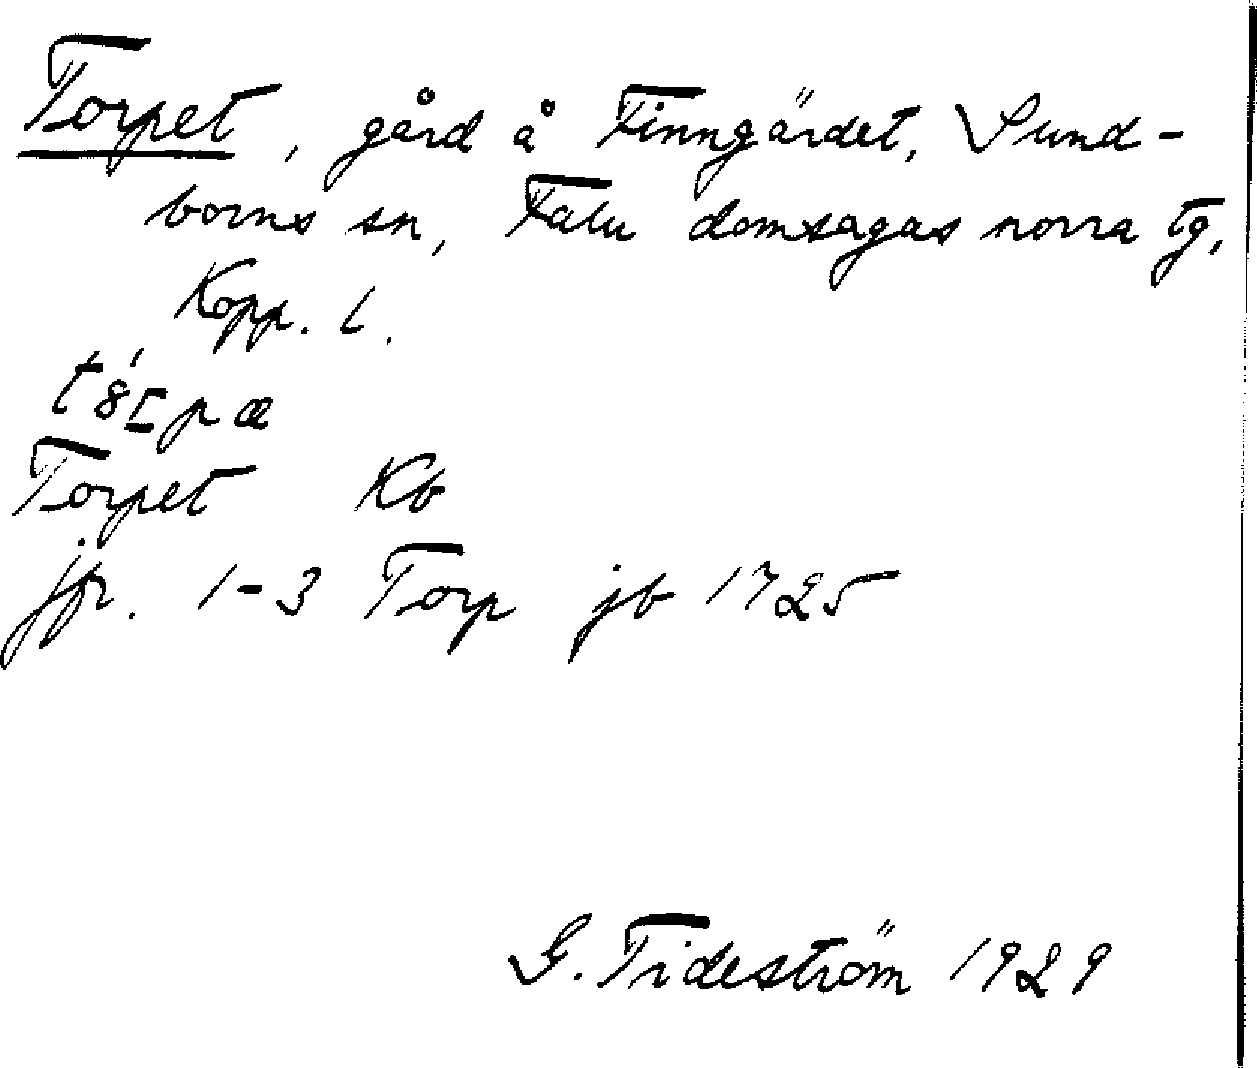 Torpet, gård å Finngärdet, Sund-
borns sn, Falu domsagas norra tg,
Kopp. l.
Torpet Kb
jfr. 1-3 Torp jb 1725
G. Tideström 1929